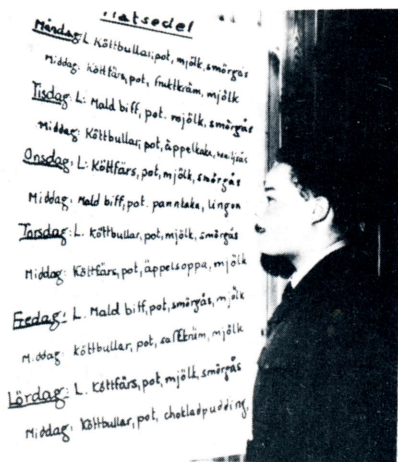 Matsedel
Måndag: L Köttbullar, pot, mjölk, smörgås
Middag: Köttfärs, pot, fruktkräm, mjölk
Tisdag: L: Mald biff, pot. mjölk, smörgås
Middag: Köttbullar, pot, äppelkaka, vaniljsås
Onsdag: L: Köttfärs, pot, mjölk, smörgås
Middag: Mald biff, pot. pannkaka, lingon
Torsdag: L. Köttbullar, pot, mjölk, smörgås
Middag: Köttfärs, pot, äppelsoppa, mjölk
Fredag: L. Mald biff, pot, smörgås, mjölk
Middag: Köttbullar, pot, saftkräm, mjölk
Lördag: L. Köttfärs, pot, mjölk, smörgås
Middag: Köttbullar, pot, chokladpudding,